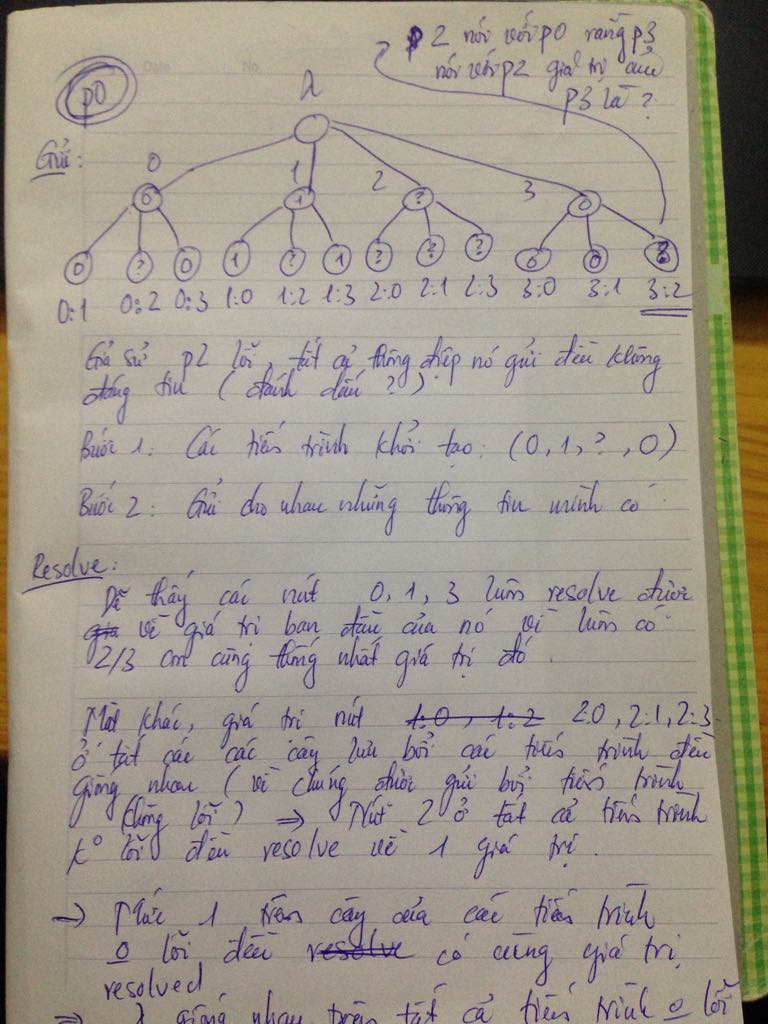 p0
Date
No.
p2 nói với p0 rằng p3
nói với p2 giá trị của
p3 là ?
λ
Gửi:
0
1
2
3
0 1 ? 0
0 ? 0 1 ? 1 ? ? ? 0 0
0:1 0:2 0:3 1:0 1:2 1:3 2:0 2:1 2:3 3:0 3:1 3:2
Giả sử p2 lỗi, tất cả thông điệp nó gửi đều không
đáng tin (đánh dấu ?)
Bước 1: Các tiến trình khởi tạo: (0, 1, ?, 0)
Bước 2: Gửi cho nhau những thông tin mình có
Resolve:
Dễ thấy các nút 0, 1, 3 luôn resolve được
giá về giá trị ban đầu của nó vì luôn có
2/3 con cùng thống nhất giá trị đó.
Mặt khác, giá trị nút 1:0, 1:2 2:0, 2:1, 2:3
ở tất các các cây lưu bởi các tiến trình đều
giống nhau (vì chúng được gửi bởi tiến trình
không lỗi) ⇒ Nút 2 ở tất cả tiến trình
k° lỗi đều resolve về 1 giá trị.
→ Mức 1 trên cây của các tiến trình
o lỗi đều resolve có cùng giá trị
resolved
⇒ λ giống nhau trên tất cả tiến trình o lỗi